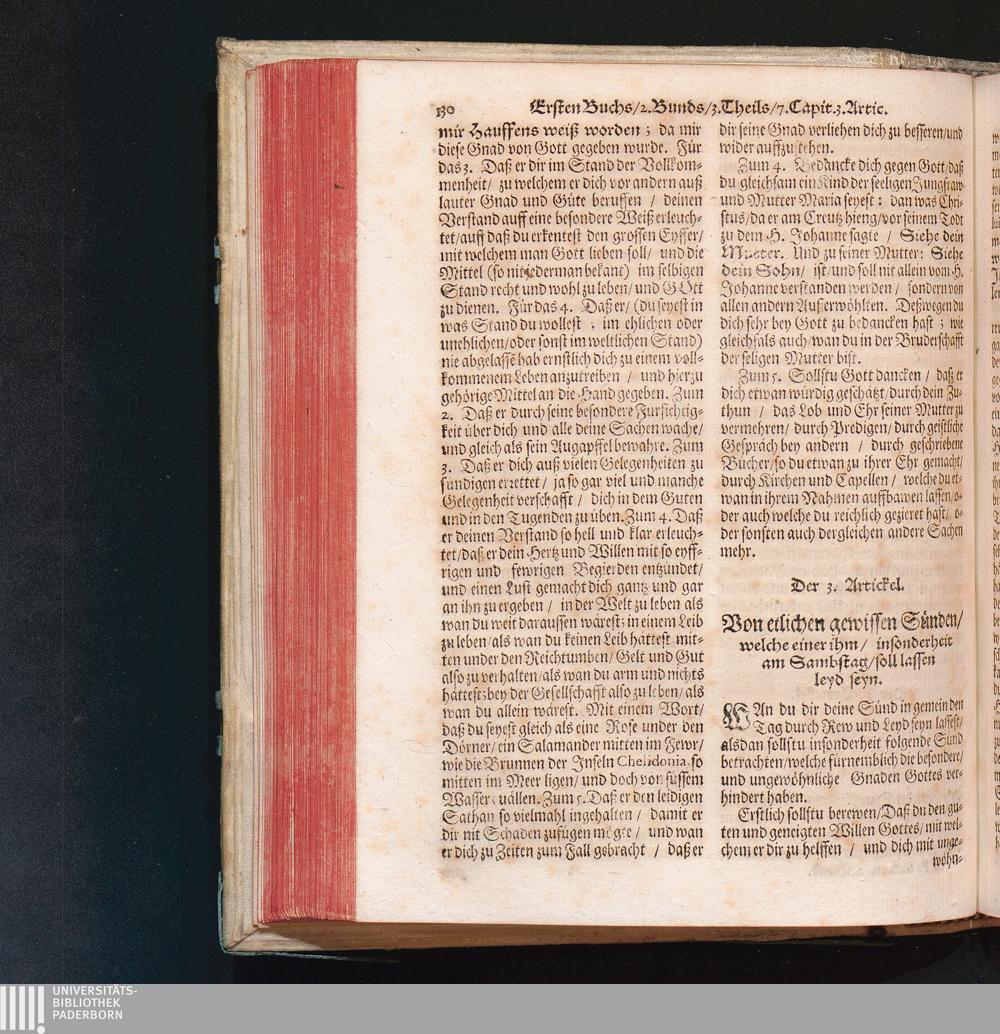 130
Ersten Buchs/2. Bunds/3. Theils/7. Capit. 3. Artic.
mir Hauffens weiß worden; da mir
diese Gnad von Gott gegeben wurde. Für
das 3. Daß er dir im Stand der Vollkom-
menheit/ zu welchem er dich vor andern auß
lauter Gnad und Güte beruffen / deinen
Verstand auff eine besondere Weiß erleuch-
tet/auff daß du erkentest den grossen Eyffer/
mit welchem man Gott lieben soll/ und die
Mittel (so nit jederman bekant) im selbigen
Stand recht und wohl zu leben/ und GOtt
zu dienen. Für das 4. Daß er/ (du seyest in
was Stand du wollest ; im ehlichen oder
unehlichen/oder sonst im weltlichen Stand)
nie abgelassẽ hab ernstlich dich zu einem voll-
kommenem Leben anzutreiben / und hierzu
gehörige Mittel an die Hand gegeben. Zum
2. Daß er durch seine besondere Fürsichtig-
keit über dich und alle deine Sachen wache/
und gleich als sein Augapffel bewahre. Zum
3. Daß er dich auß vielen Gelegenheiten zu
sündigen errettet / ja so gar viel und manche
Gelegenheit verschafft / dich in dem Guten
und in den Tugenden zu üben. Zum 4. Daß
er deinen Verstand so hell und klar erleuch-
tet/daß er dein Hertz und Willen mit so eyff-
rigen und fewrigen Begierden entzündet/
und einen Lust gemacht dich gantz und gar
an ihn zu ergeben / in der Welt zu leben als
wan du weit daraussen wärest; in einem Leib
zu leben/als wan du keinen Leib hättest mit-
ten under den Reichtumben/ Gelt und Gut
also zu verhalten/als wan du arm und nichts
hättest; bey der Gesellschafft also zu leben/ als
wan du allein wärest. Mit einem Wort/
daß du seyest gleich als eine Rose under den
Dörner/ ein Salamander mitten im Fewr/
wie die Brunnen der Inseln Chelidonia, so
mitten im Meer ligen/ und doch von süssem
Wasser quällen. Zum 5. Daß er den leidigen
Sathan so vielmahl ingehalten / damit er
dir nit Schaden zufügen mögte / und wan
er dich zu Zeiten zum Fall gebracht / daß er
dir seine Gnad verliehen dich zu besseren/und
wider auffzustehen.
Zum 4. Bedancke dich gegen Gott/daß
du gleichsam ein Kind der seeligen Jungfraw
und Mutter Maria seyest: dan was Chri-
stus/da er am Creutz hieng/vor seinem Todt
zu dem H. Johanne sagte / Siehe dein
Mutter. Und zu seiner Mutter: Siehe
dein Sohn/ ist/und soll nit allein vom H.
Johanne verstanden werden / sondern von
allen andern Außerwöhlten. Deßwegen du
dich sehr bey Gott zu bedancken hast ; wie
gleichfals auch/wan du in der Bruderschafft
der seligen Mutter bist.
Zum 5. Sollstu Gott dancken / daß er
dich etwan würdig geschätzt/durch dein Zu-
thun / das Lob und Ehr seiner Mutter zu
vermehren/ durch Predigen/ durch geistliche
Gespräch bey andern / durch geschriebene
Bücher/so du etwan zu ihrer Ehr gemacht/
durch Kirchen und Capellen / welche du et-
wan in ihrem Nahmen auffbawen lassen/o-
der auch welche du reichlich gezieret hast/ o-
der sonsten auch dergleichen andere Sachen
mehr.
Der 3. Artickel.
Von etlichen gewissen Sünden/
welche einer ihm/ insonderheit
am Sambstag/soll lassen
leyd seyn.
WAn du dir deine Sünd in gemein den
Tag durch Rew und Leyd seyn lassest/
alsdan sollstu insonderheit folgende Sünd
betrachten/welche fürnemblich die besondere/
und ungewöhnliche Gnaden Gottes ver-
hindert haben.
Erstlich sollstu berewen/Daß du den gu-
ten und geneigten Willen Gottes/ mit wel-
chem er dir zu helffen / und dich mit unge-
wöhn-
UNIVERSITÄTS-
BIBLIOTHEK
PADERBORN